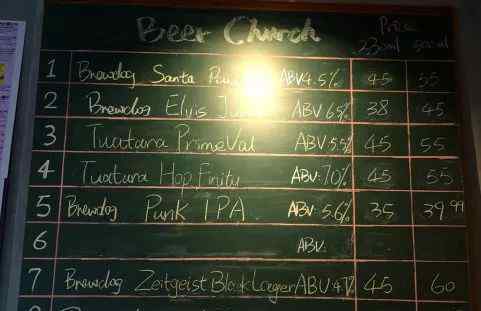 Beer Church
Price
330ml 500ml
1 Brewdog Santa ABV4.5% 45 55
2 Brewdog Elvis ABV 6.5% 38 45
3 Tuatara PrimeVal ABV: 5.5% 45 55
4 Tuatara Hop Finity ABV: 7.0% 45 55
5 Brewdog Punk IPA ABV: 5.6% 35 39.99
6 ABV:
7 Brewdog Zeitgeist Black Lager ABV 4.7% 45 60